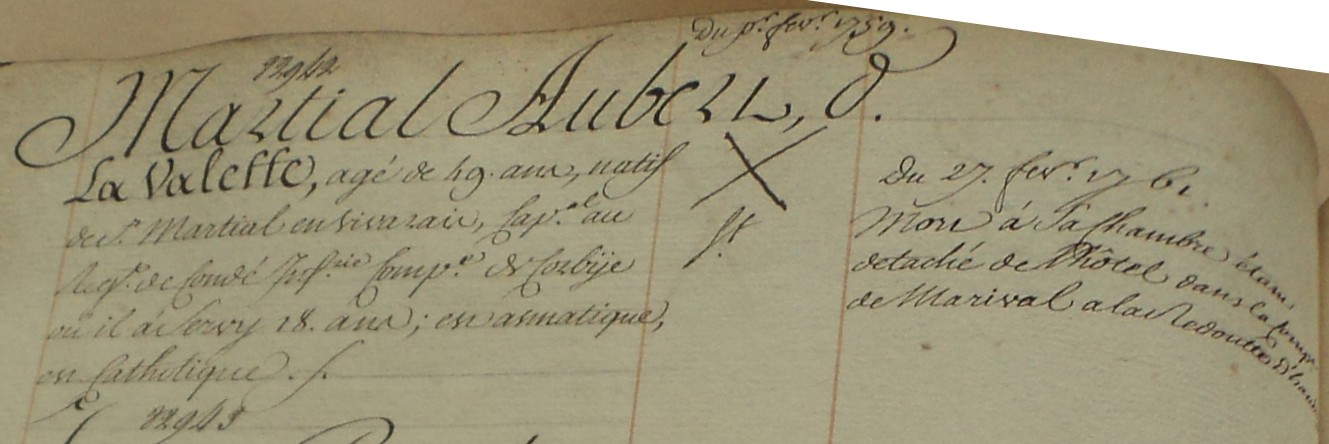 Du p.r fev.r 1759.
82942
Martial Aubert, d.
La Valette, agé de 49. ans, natif
de S.t Martial en vivarais, Cap.al au
Reg.t de Condé Inf.rie Comp.e de Corbije
ou il a servy 18. ans; est asmatique,
est Catholique. f.
ft
Du 27. fev.r 1761.
Mort à sa Chambre étant
detaché de l'hôtel dans la Comp.e
de Marival a la Redoutte
82943